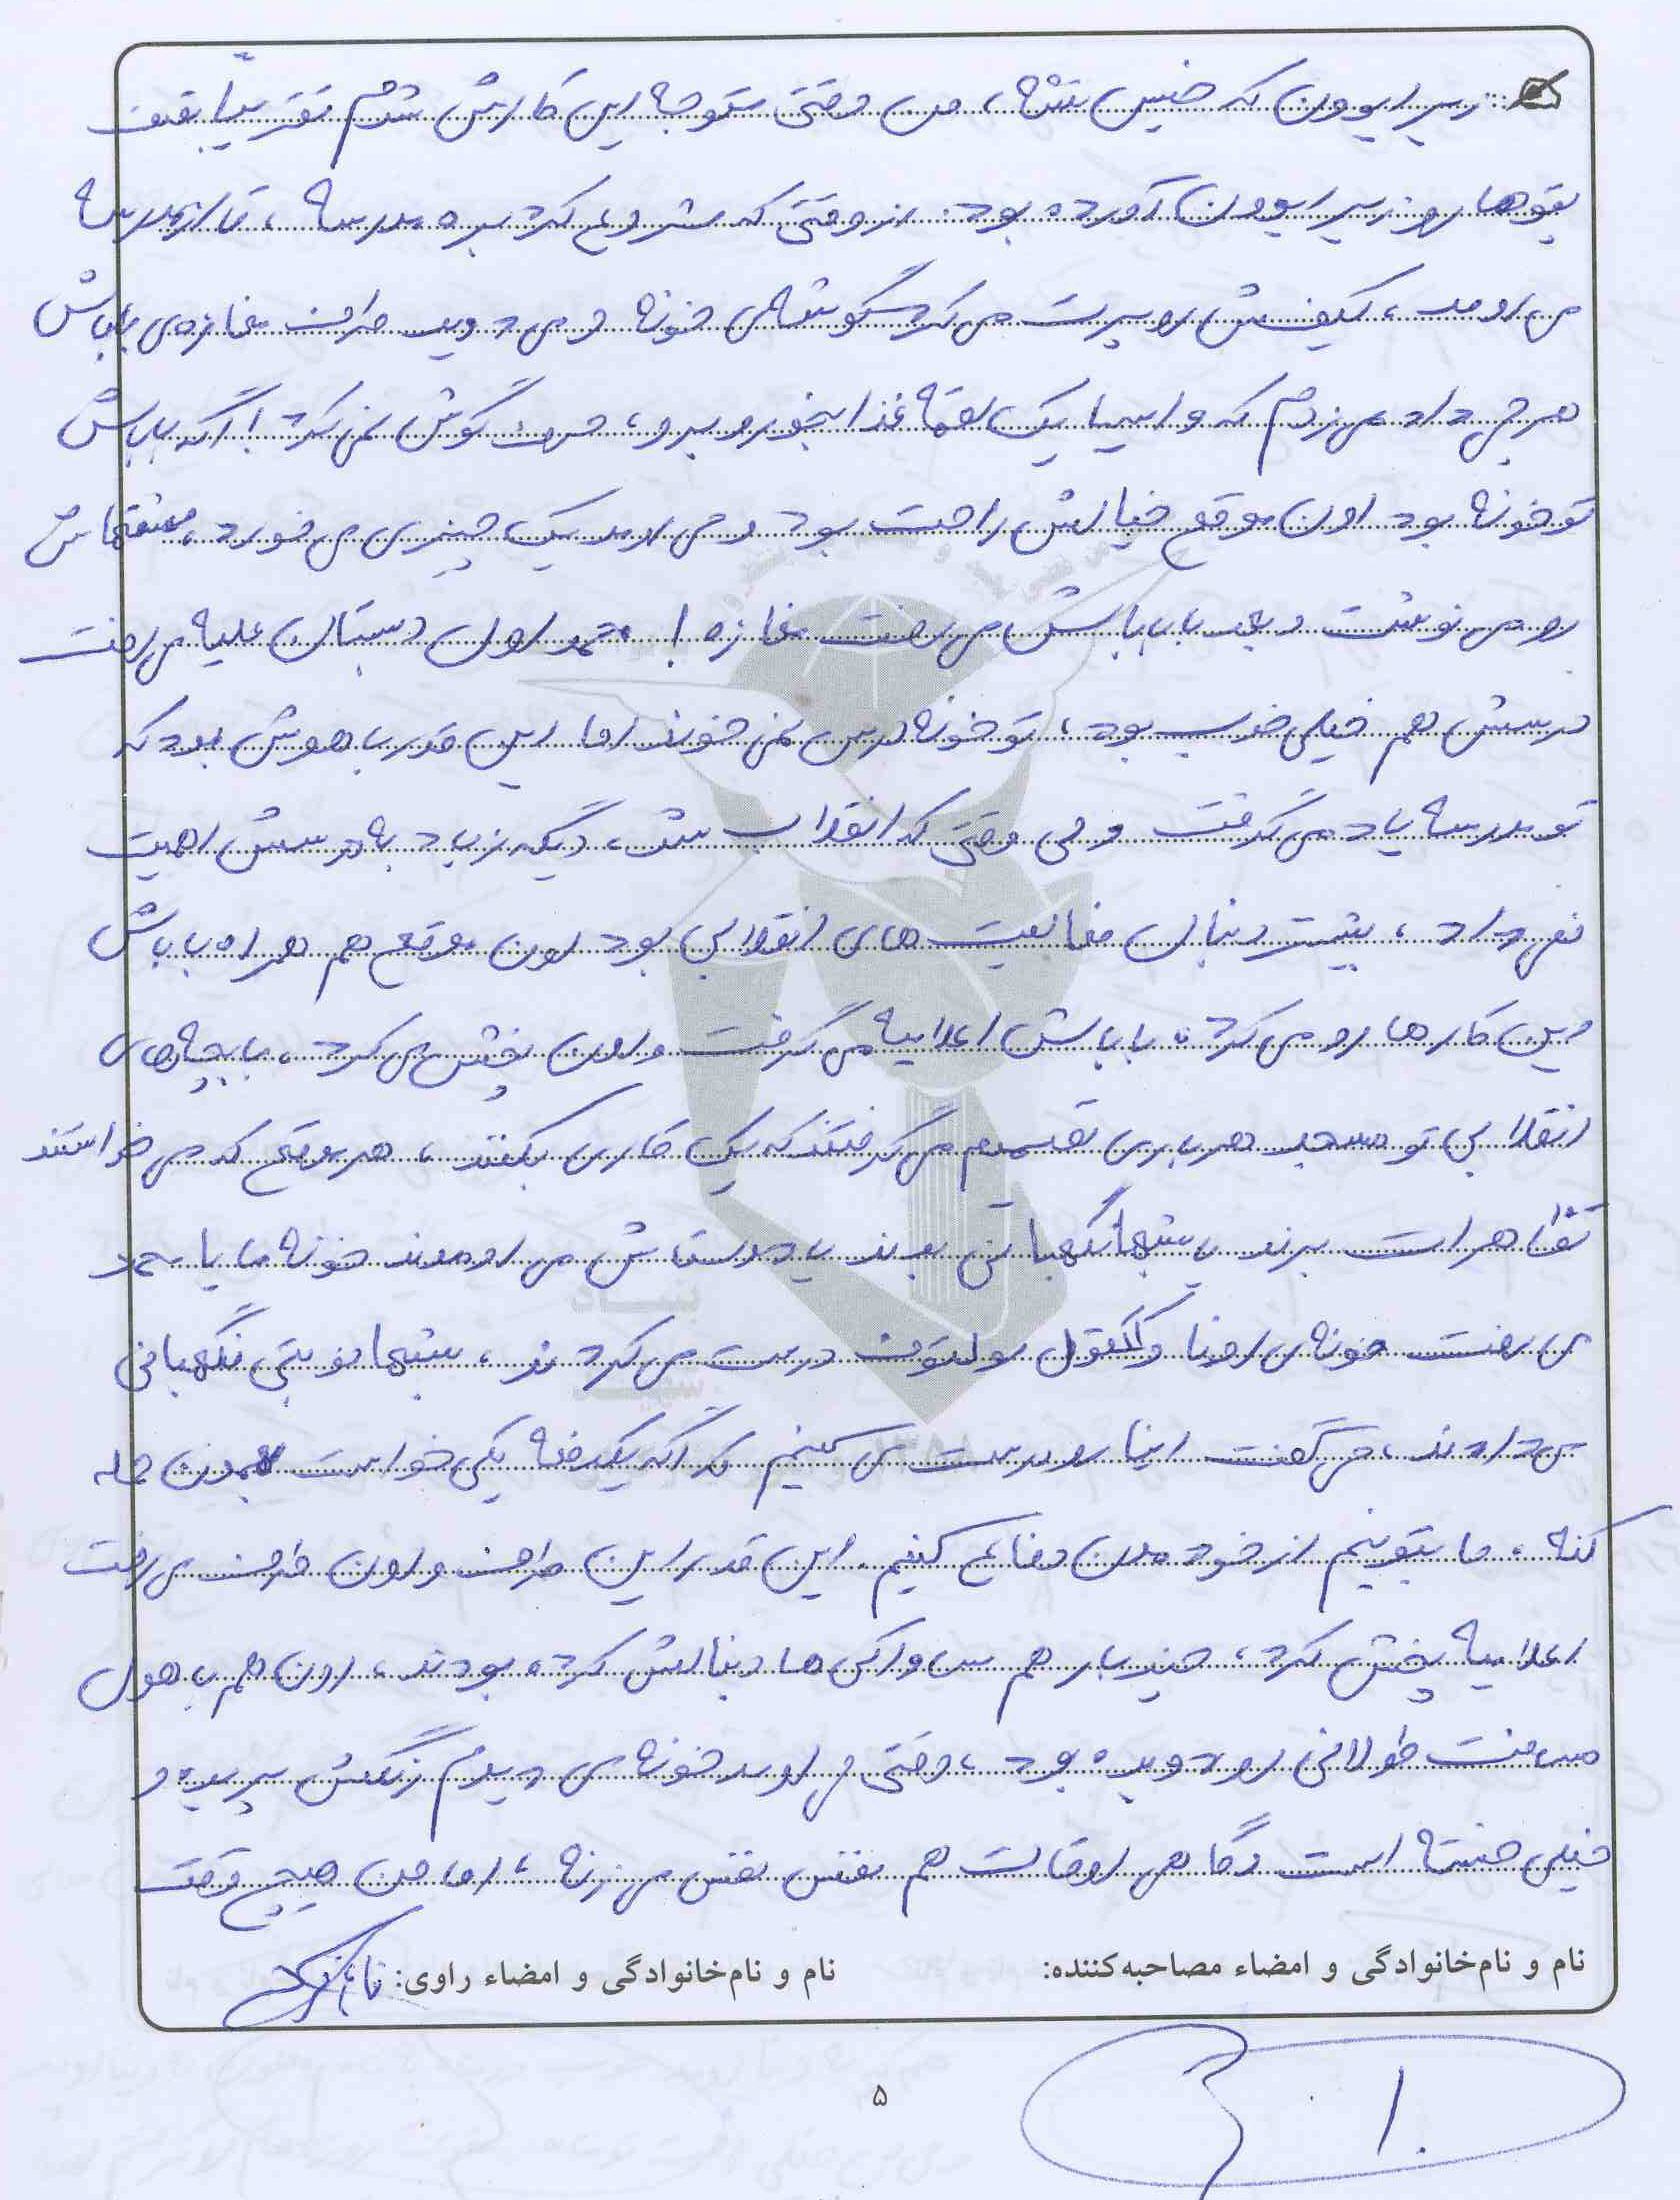 زیر ایوون که خیس نشه، من وقتی متوجه این کارش شدم تقریباً نصف
پتوها رو زیر ایوون آورده بود. از وقتی که شروع کرد بره مدرسه، تا از مدرسه
می اومد، کیفش رو پرت می کرد گوشه ی خونه و می دوید طرف مغازه ی باباش
هر چی داد می زدم که وایسا یک لقمه غذا بخور و برو، حرف گوش نمی کرد! اگه باباش
تو خونه بود اون موقع خیالش راحت بود و می اومد یک چیزی می خورد، مشقهاش
رو می نوشت و بعد با باباش می رفت مغازه! محمد اول دبستان علمیه می رفت
درسش هم خیلی خوب بود، تو خونه درس نمی خوند اما این قدر باهوش بود که
تو مدرسه یاد می گرفت ولی وقتی که انقلاب شد، دیگه زیاد به درسش اهمیت
نمی داد، بیشتر دنبال فعالیت های انقلابی بود اون موقع هم همراه باباش
این کارها رو می کرد، باباش اعلامیه می گرفت و اون پخش می کرد، با بچه های
انقلابی تو مسجد هر باری تصمیم می گرفتند که یک کاری بکنند، هر موقع که می خواستند
تظاهرات برند یا شبها نگهبانی بدند یا دوستاش می اومدند خونه ما یا محمد
می رفت خونه ی اونا و کوکتل مولوتوف درست می کردند، شبها نوبتی نگهبانی
می دادند، می گفت اینا رو درست می کنیم که اگه یکدفعه یکی خواست بهمون حمله
کنه، ما بتونیم از خودمون دفاع کنیم. این قدر این طرف و اون طرف می رفت
اعلامیه پخش کرد، چند بار هم ساواکی ها دنبالش کرده بودند، اون هم با هول
مسافت طولانی رو دویده بود، وقتی می اومد خونه می دیدم رنگش پریده و
خیلی خسته است و گاهی اوقات هم نفس نفس می زنه، اما من هیچ وقت
نام و نام خانوادگی و امضاء مصاحبه کننده: نام و نام خانوادگی و امضاء راوی:
۵